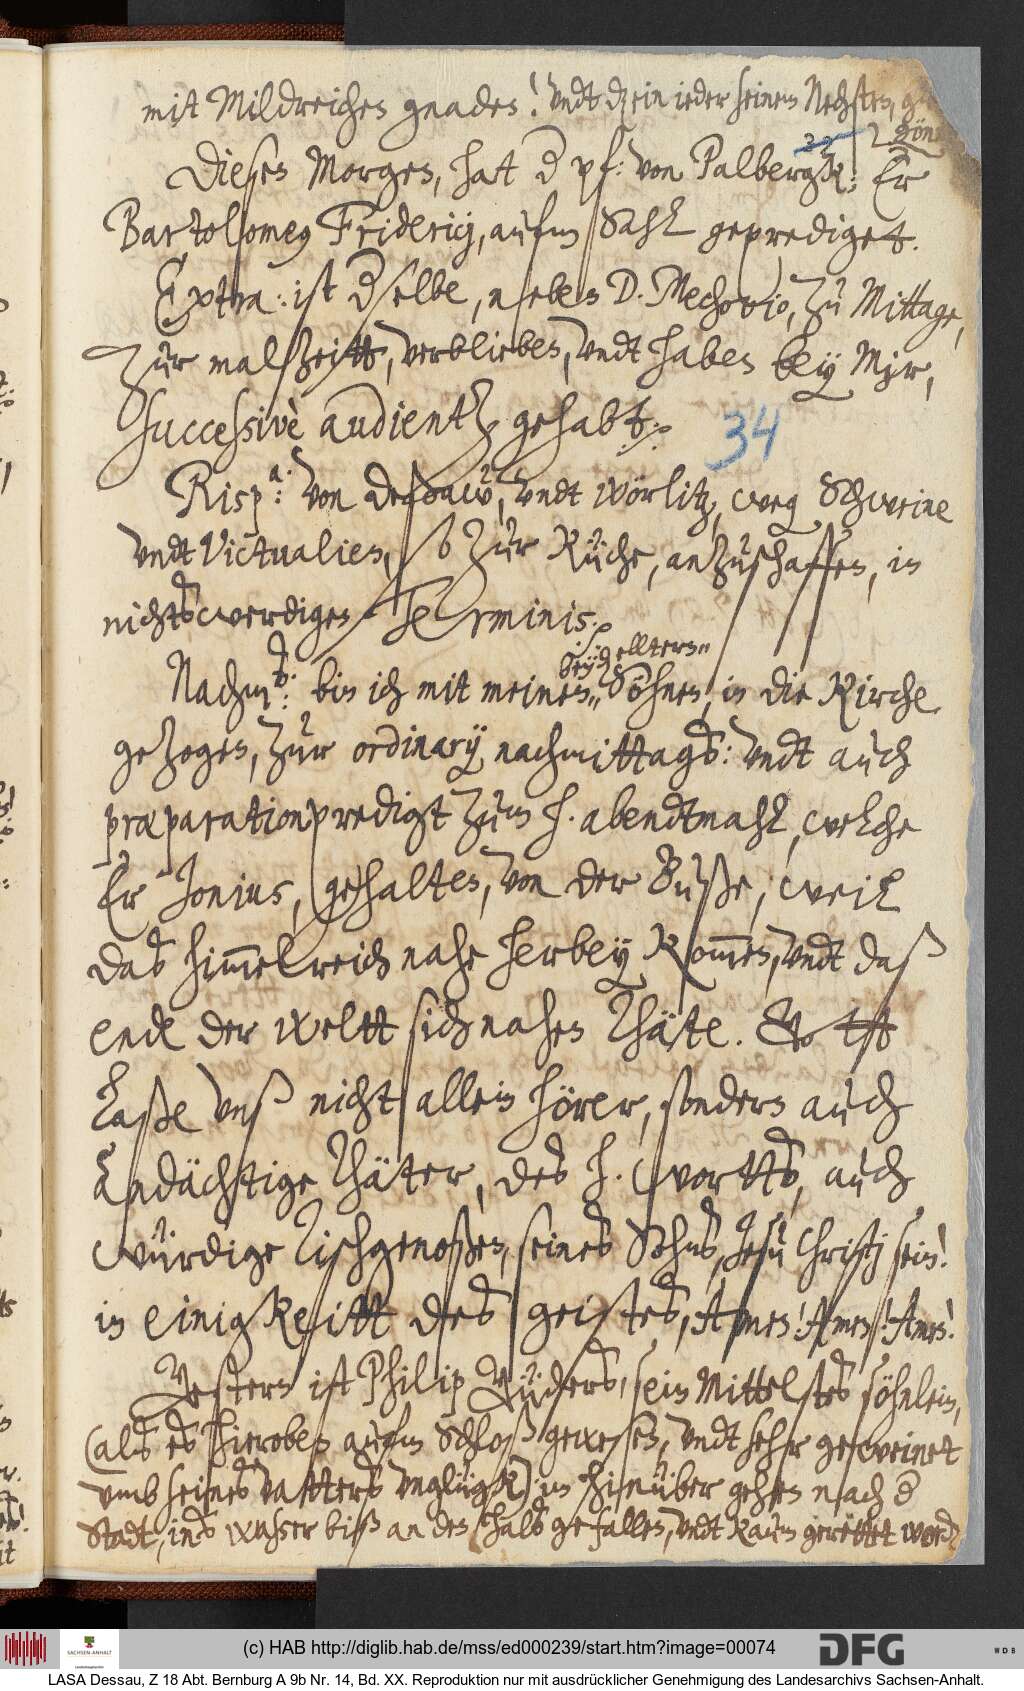 mit Mildreichen gnaden! Vndt dz ein ieder seinen Nechsten,
Dieses Morgen, hat d pf: von Palberg: Er
Bartolomeus Fridericij, aufm Sahl geprediget.
Extra: ist dselbe, neben D. Mechovio, zu Mittage,
zur malzeitt, verblieben, vndt haben bey Mir,
successivè audientz gehabt.
34
Risp.a: von Deßaw, vndt Wörlitz, weg Schweine
vndt Victualien, so zur Küche, anzuschaffen, in
nichtswerdigen Terminis.
beyd ellters"
Nachmts: bin ich mit meinen" Söhnen, in die Kirche
gezogen, zur ordinarij nachmittags: vndt auch
præparationpredigt zum h. abendtmahl, welche
Er Jonius, gehalten, von der Buße, weil
das himmelreich nahe herbey kommen, vndt daß
ende der weltt sich nahen thäte. Gott
laße vnß nicht allein hörer, sondern auch
andächtige thäter, des h. wortts, auch
würdige Tischgenoßen, seines Sohns, Jesu Christj sein!
in einigkeitt des geistes, Amen! Amen! Amen!
Gestern ist Philip Güders, sein Mittelstes söhnlein,
(als es hieroben aufm Schloß gewesen, vndt sehr geweinet
vmb seines vatters vnglügk) im hinüber gehen nach d
Stadt, ins waßer biß an den halß gefallen, vndt kaum gerettet word
(c) HAB http://diglib.hab.de/mss/ed000239/start.htm?image=00074
SACHSEN-ANHALT
DFG
WDB
LASA Dessau, Z 18 Abt. Bernburg A 9b Nr. 14, Bd. XX. Reproduktion nur mit ausdrücklicher Genehmigung des Landesarchivs Sachsen-Anhalt.